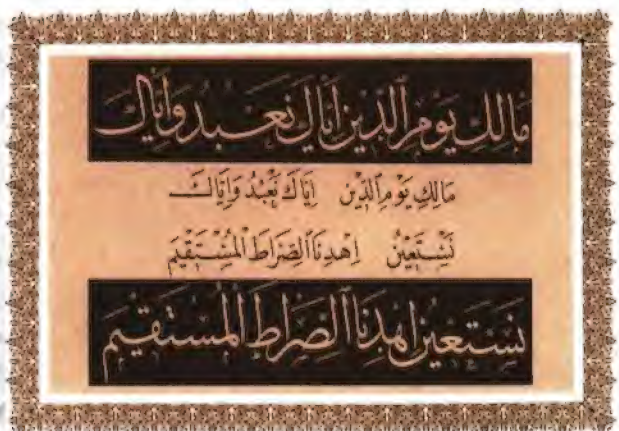 مَالِكِ يَوْمِ ٱلدِّينِ إِيَّاكَ نَعْبُدُ وَإِيَّاكَ
مَالِكِ يَوْمِ ٱلدِّينِ إِيَّاكَ نَعْبُدُ وَإِيَّاكَ
نَسْتَعِينُ اِهْدِنَا ٱلصِّرَاطَ ٱلْمُسْتَقِيمَ
نَسْتَعِينُ اِهْدِنَا ٱلصِّرَاطَ ٱلْمُسْتَقِيمَ